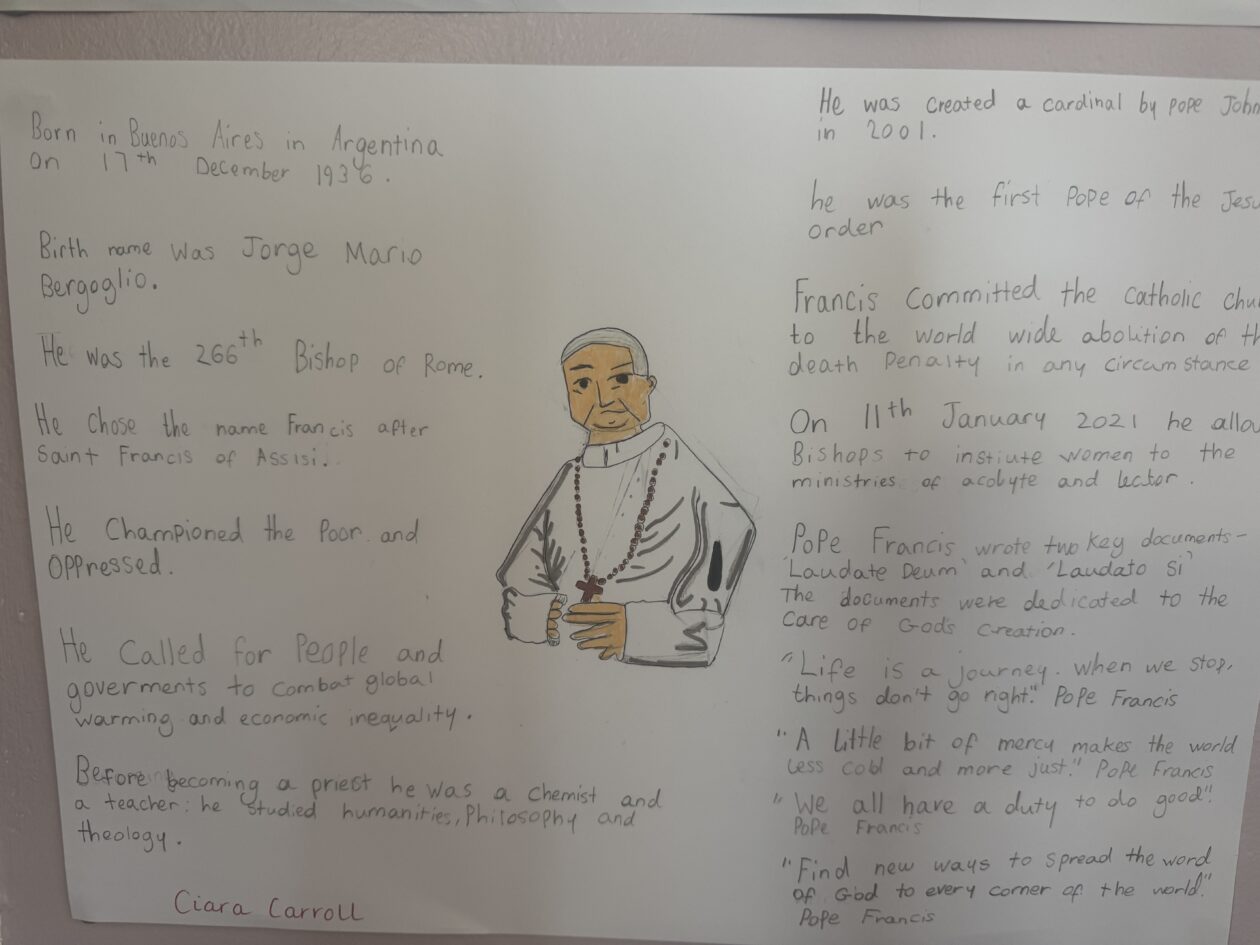 Born in Buenos Aires in Argentina
on 17th December 1936.
Birth name was Jorge Mario
Bergoglio.
He was the 266th Bishop of Rome.
He chose the name Francis after
Saint Francis of Assisi.
He Championed the Poor and
oppressed.
He Called for People and
goverments to combat global
warming and economic inequality.
Before becoming a priest he was a chemist and
a teacher: he studied humanities, Philosophy and
theology.
Ciara Carroll
He was created a cardinal by pope John
in 2001.
he was the first Pope of the Jesu
order
Francis Committed the Catholic chu
to the world wide abolition of th
death Penalty in any circumstance
On 11th January 2021 he allow
Bishops to instiute women to the
ministries of acobyte and lector.
Pope Francis wrote two key documents-
'Laudate Deum' and 'Laudato Si'
The documents were dedicated to the
Care of God's Creation.
"Life is a journey. When we stop,
things don't go right." Pope Francis
"A little bit of mercy makes the world
less cold and more just." Pope Francis
"We all have a duty to do good".
Pope Francis
"Find new ways to spread the word
of God to every corner of the world."
Pope Francis